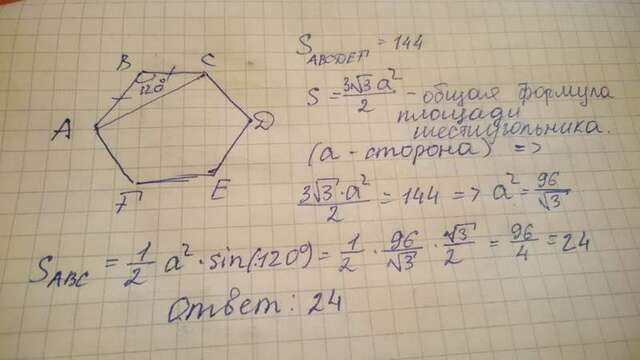 B C
120°
A D
F E
S ABCDEF = 144
S = 3√3 a²/2 - общая формула
площади
шестиугольника.
(a - сторона) =>
3√3 · a²/2 = 144 => a² = 96/√3
S ABC = 1/2 a² · sin(120°) = 1/2 · 96/√3 · √3/2 = 96/4 = 24
Ответ: 24